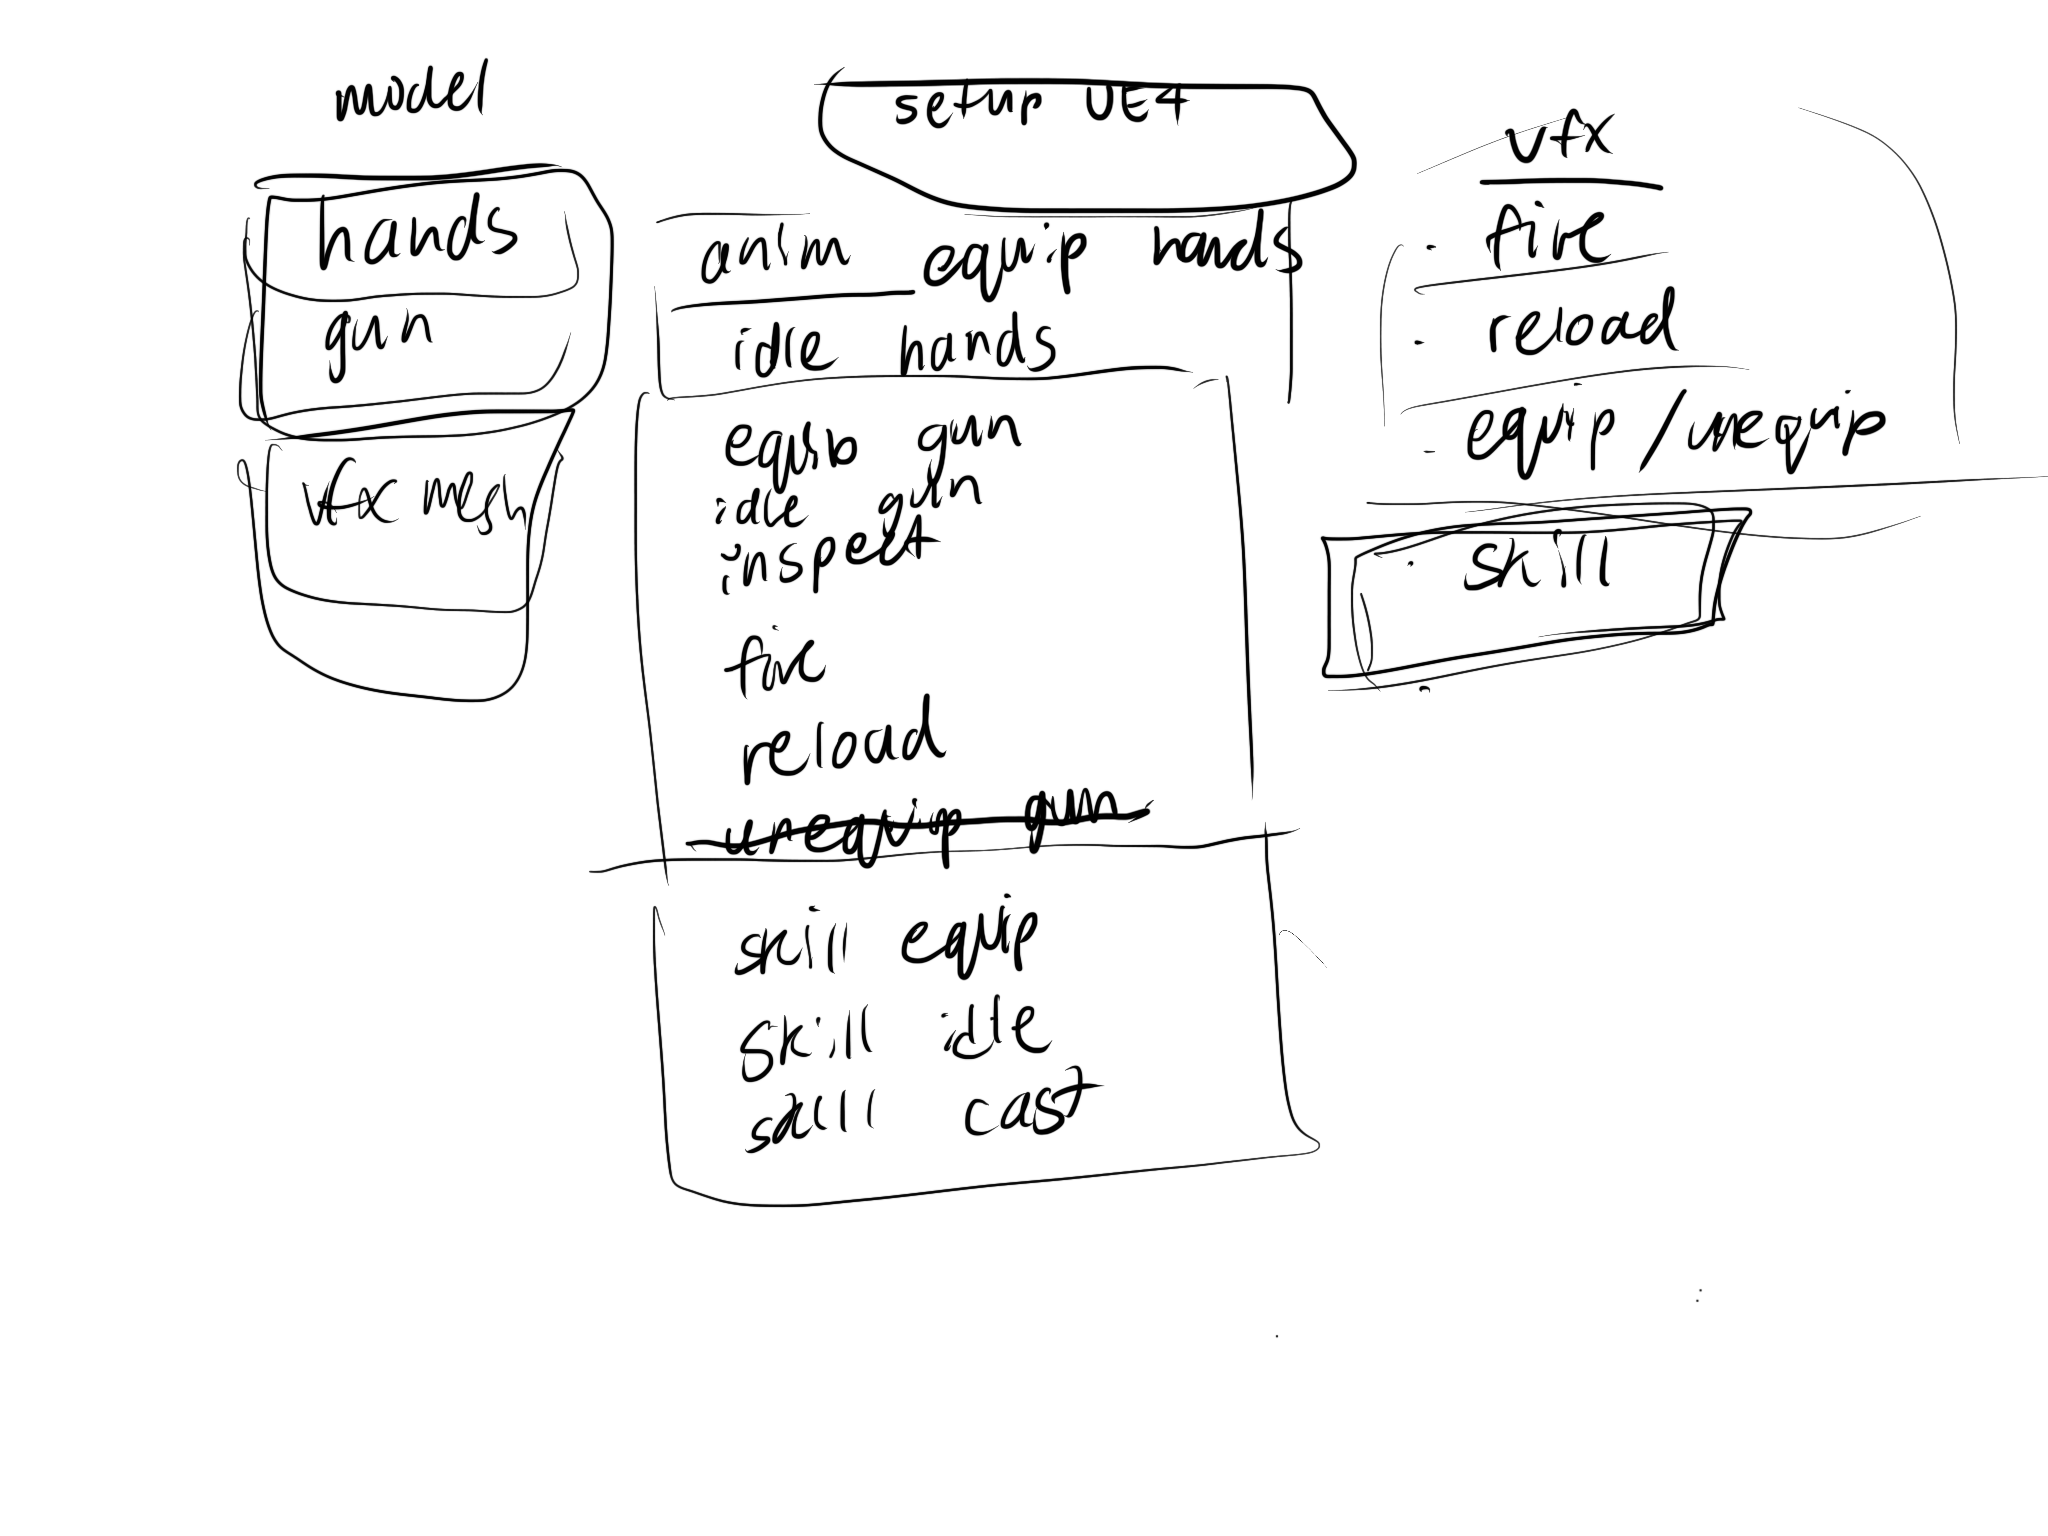 model
hands
gun
vfx mesh
setup UE4
anim equip hands
idle hands
equib gun
idle gun
inspect
fire
reload
unequip gun
skill equip
skill idle
skill cast
vfx
. fire
. reload
- equip / unequip
. skill